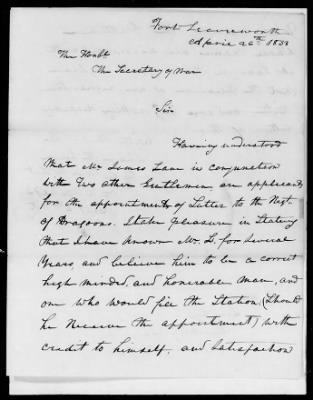 Fort Leavenworth
April 26th 1838
The Honbl
The Secretary of War
Sir
Having understood
that Mr James Lane in conjunction
with two other Gentlemen are applicants
for the appointment of Sutler to the Regt
of Dragoons. I take pleasure in stating
that I have known Mr L. for several
Years, and believe him to be a correct
high minded, and honorable Man, and
one who would fill the Station (Should
he Receive the appointment) with
credit to himself, and Satisfaction